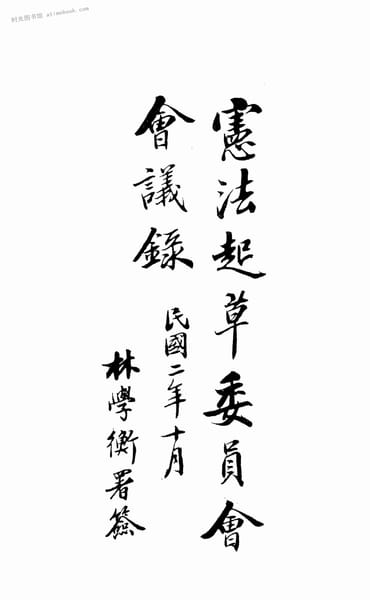 时光图书馆 atimebook.com
憲法起草委員會
會議錄
民國二年十月
林學衡署簽